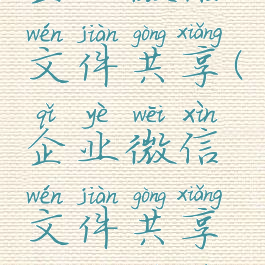 wén jiàn gòng xiǎng
文件共享(
qǐ yè wēi xìn
企业微信
wén jiàn gòng xiǎng
文件共享